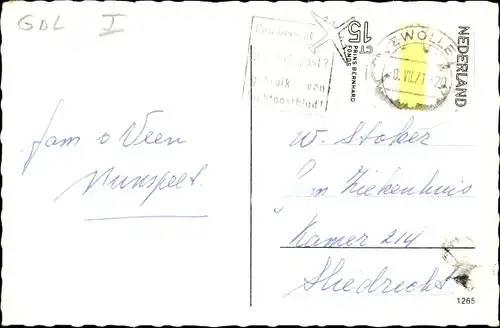 GDL I
Een bericht
post?
gebruik een
luchtpostblad!
15
CT
PRINS BERNHARD
FONDS
ZWOLLE
8.VII.71.-20
NEDERLAND
fam v Veen
Nunspeet.
W. Stoker
Ziekenhuis
Kamer 214
Sliedrecht
1265